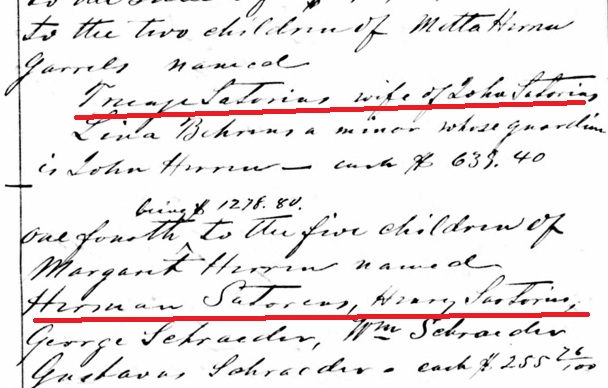 to the two children of Metta Herren
Garrels named
Trienje Satorius wife of John Satorius
Lina Behrens a minor whose guardian
is John Herren — each $ 639.40
being $ 1278.80.
one fourth to the five children of
Margaret Herren named
Herman Satorius, Henry Sartorius,
George Schraeder, Wm Schraeder
Gustavus Schraeder. each $ 255 76/100